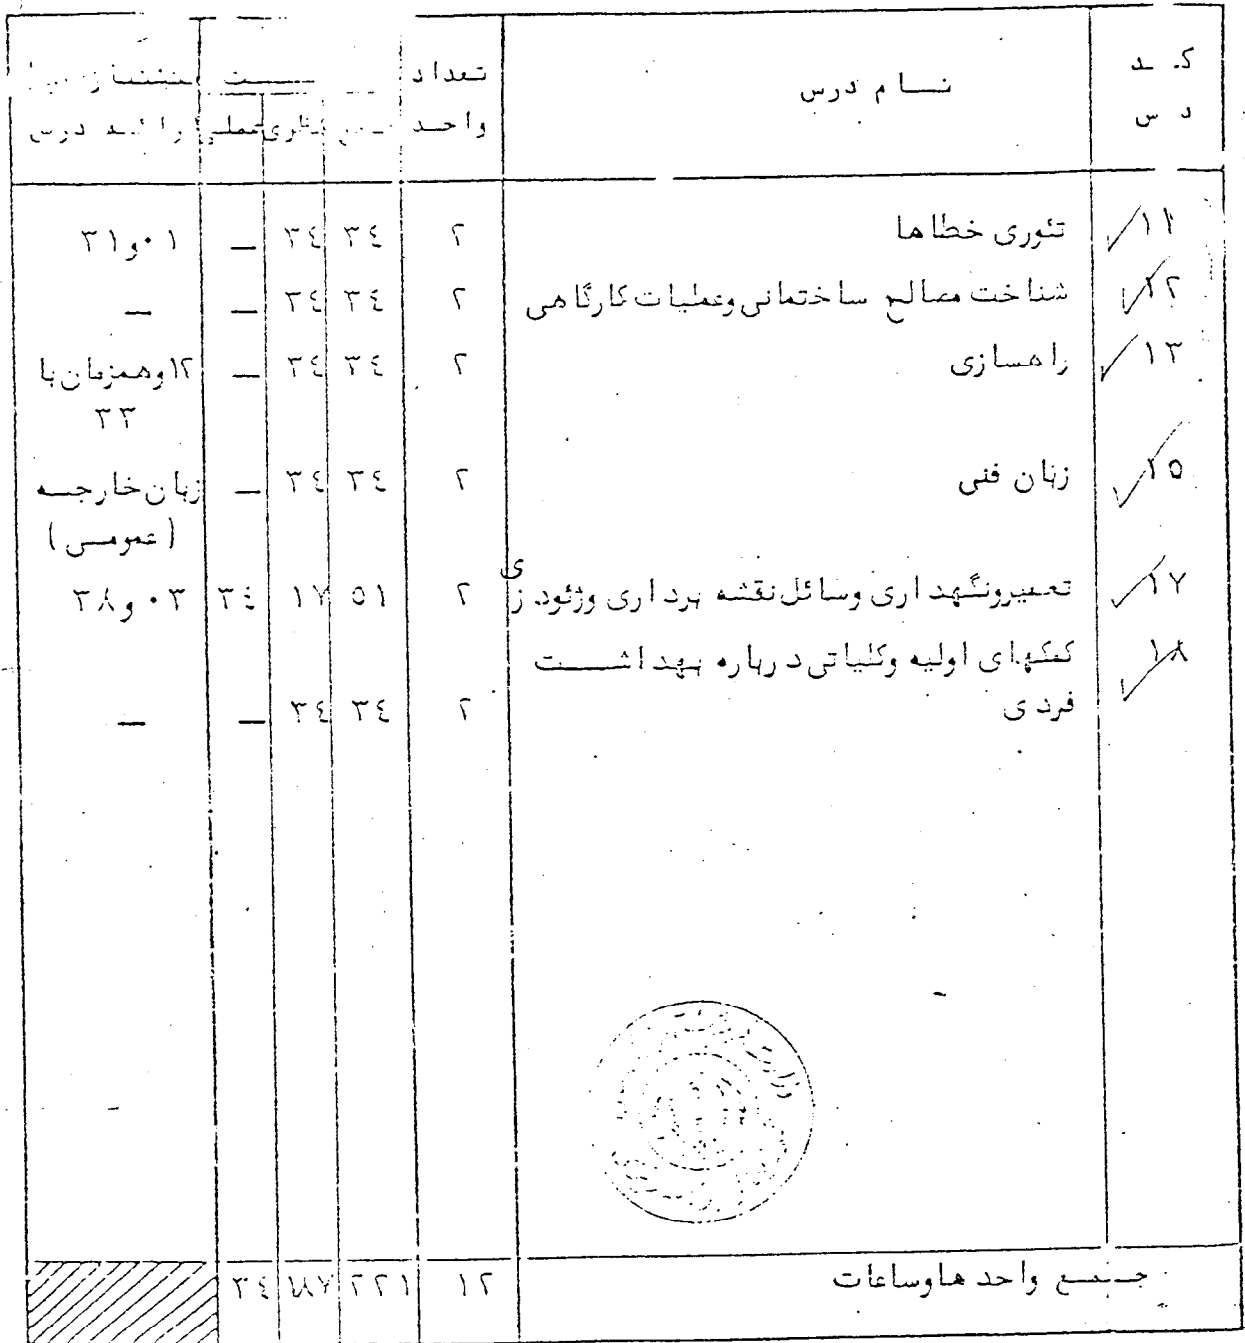 کد درس نام درس تعداد واحد جمع نظری عملی
۱۱ تئوری خطاها ۲ ۳٤ ۳٤ — ۰۱ و ۳۱
۱۲ شناخت مصالح ساختمانی وعملیات کارگاهی ۲ ۳٤ ۳٤ — —
۱۳ راهسازی ۲ ۳٤ ۳٤ — ۱۲ وهمزمان با
۳۳
۱٥ زبان فنی ۲ ۳٤ ۳٤ — زبان خارجه
(عمومی)
۱۷ تعمیرونگهداری وسائل نقشه برداری وژئودزی ۲ ٥۱ ۱۷ ۳٤ ۰۳ و ۳۸
۱۸ کمکهای اولیه وکلیاتی درباره بهداشت
فردی ۲ ۳٤ ۳٤ — —
جمع واحدهاوساعات ۱۲ ۲۲۱ ۱۸۷ ۳٤